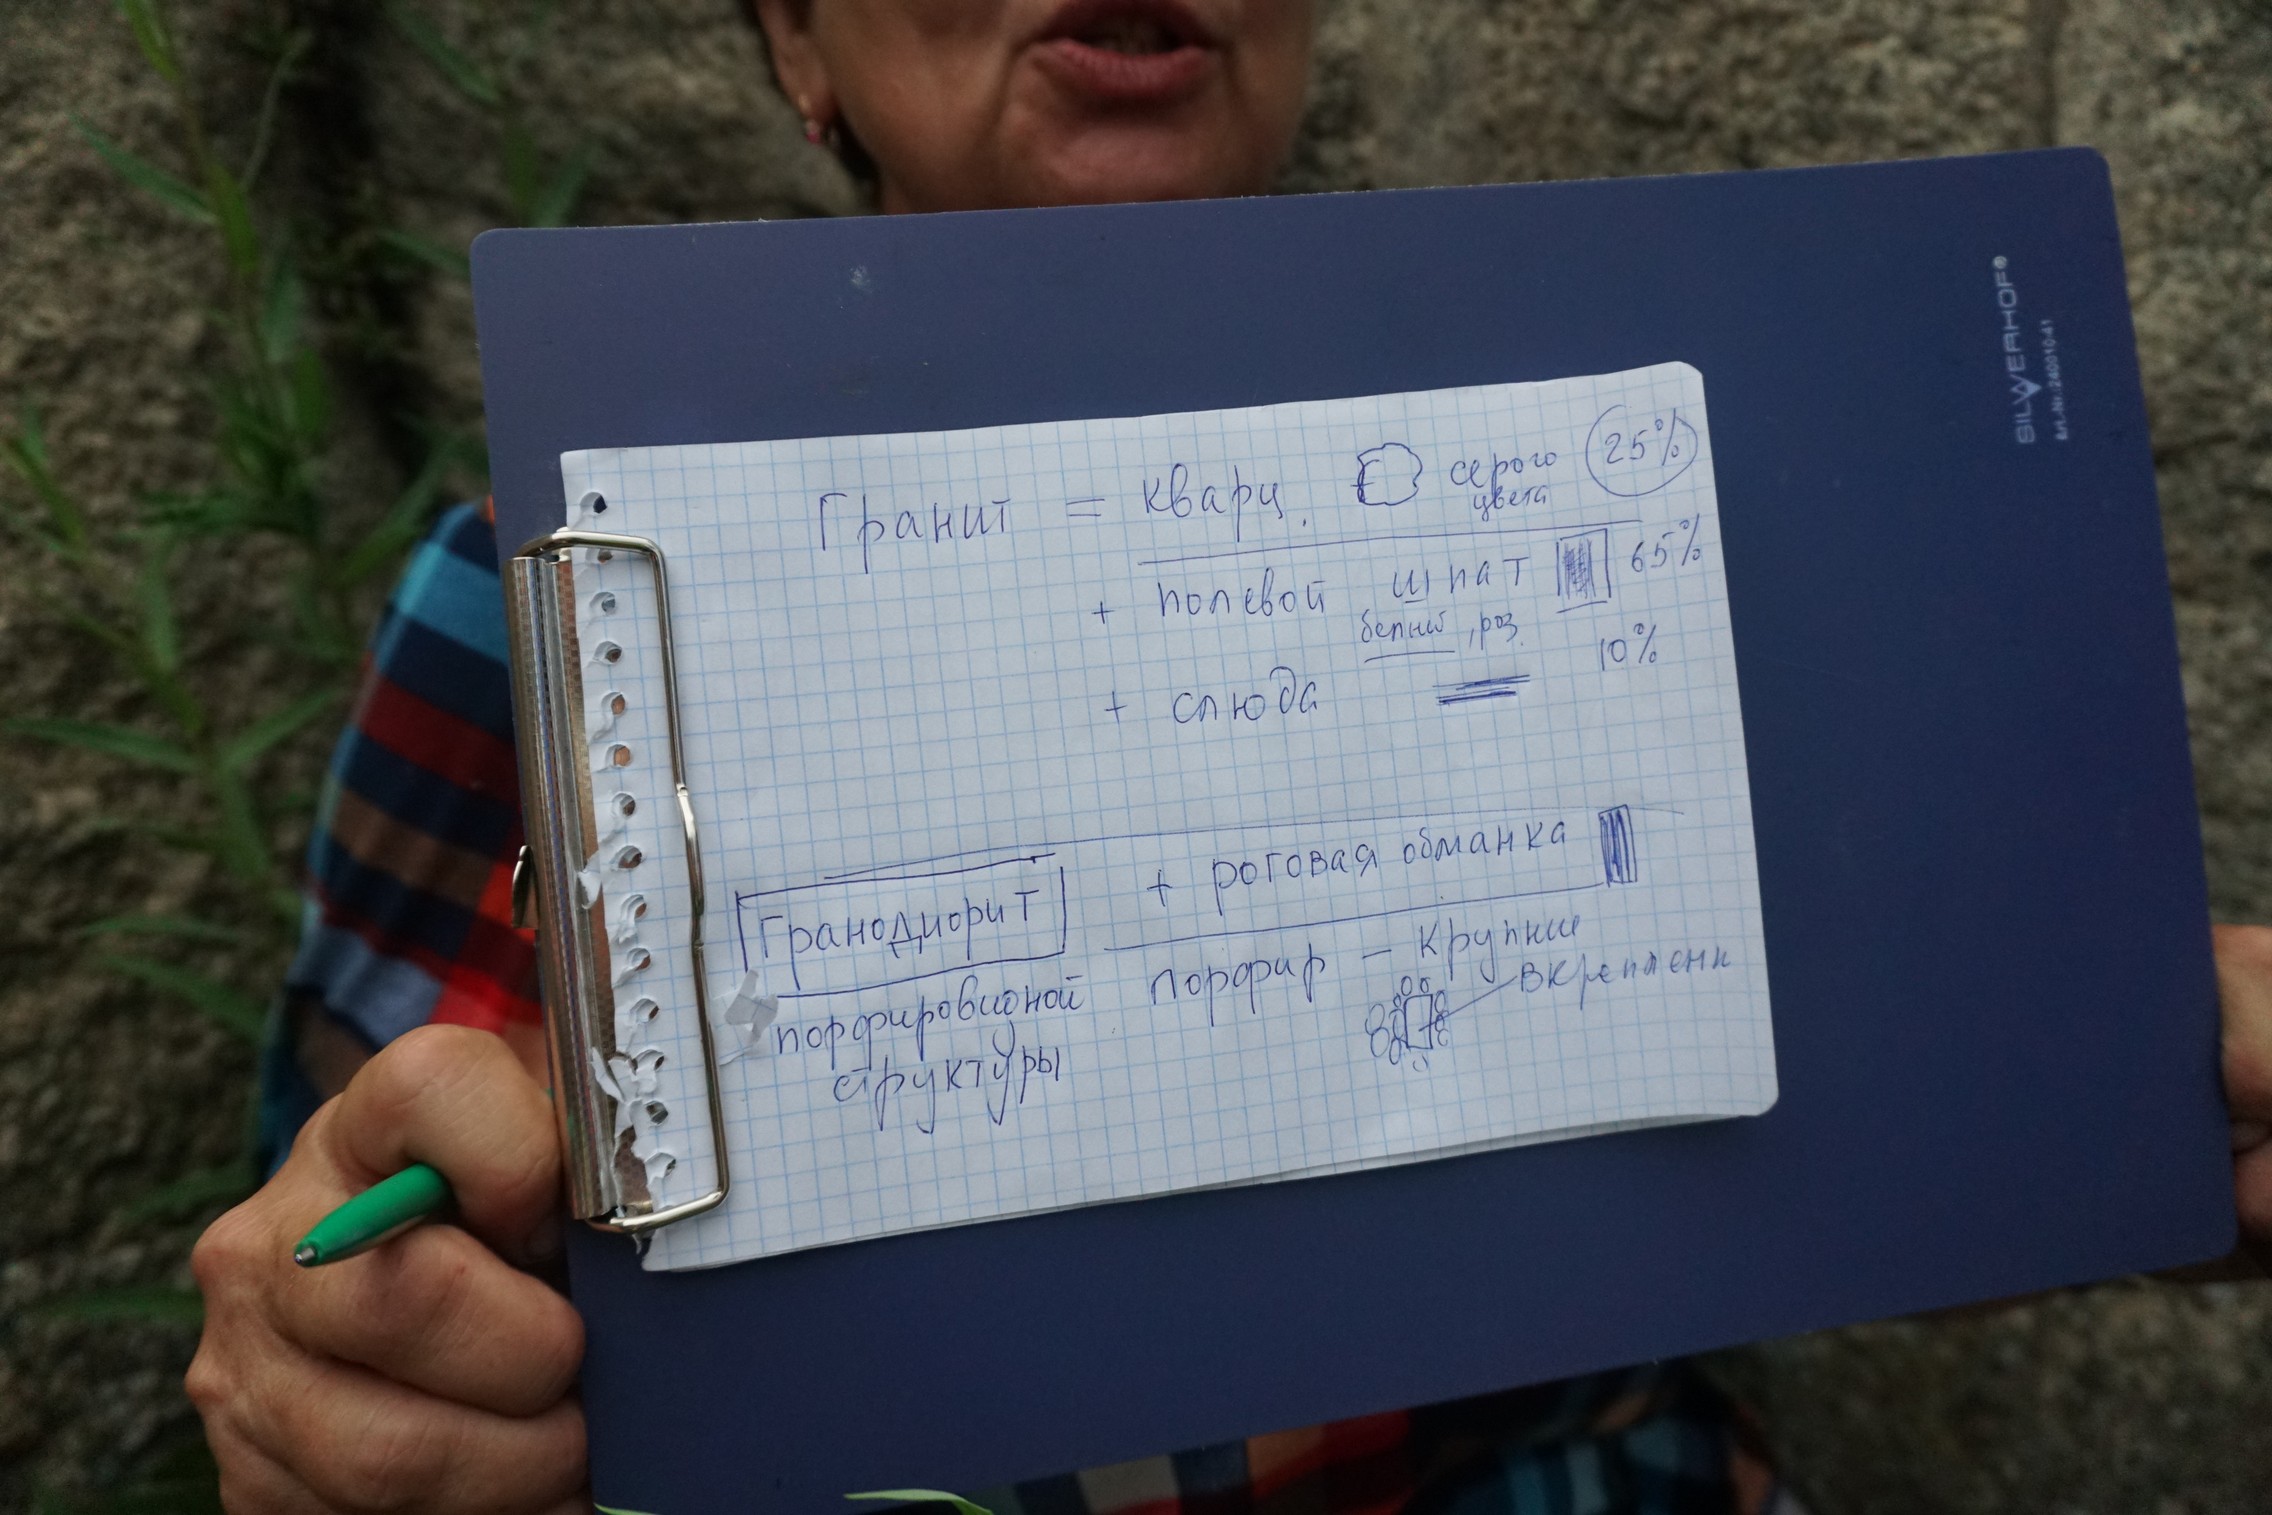 Гранит = кварц. серого 25%
цвета
+ полевой шпат 65%
белый, роз.
10%
+ слюда
+ роговая обманка
Гранодиорит
порфир – крупные
вкраплени
порфировидной
структуры
SILWERHOF®
Art.-Nr.:240010-41